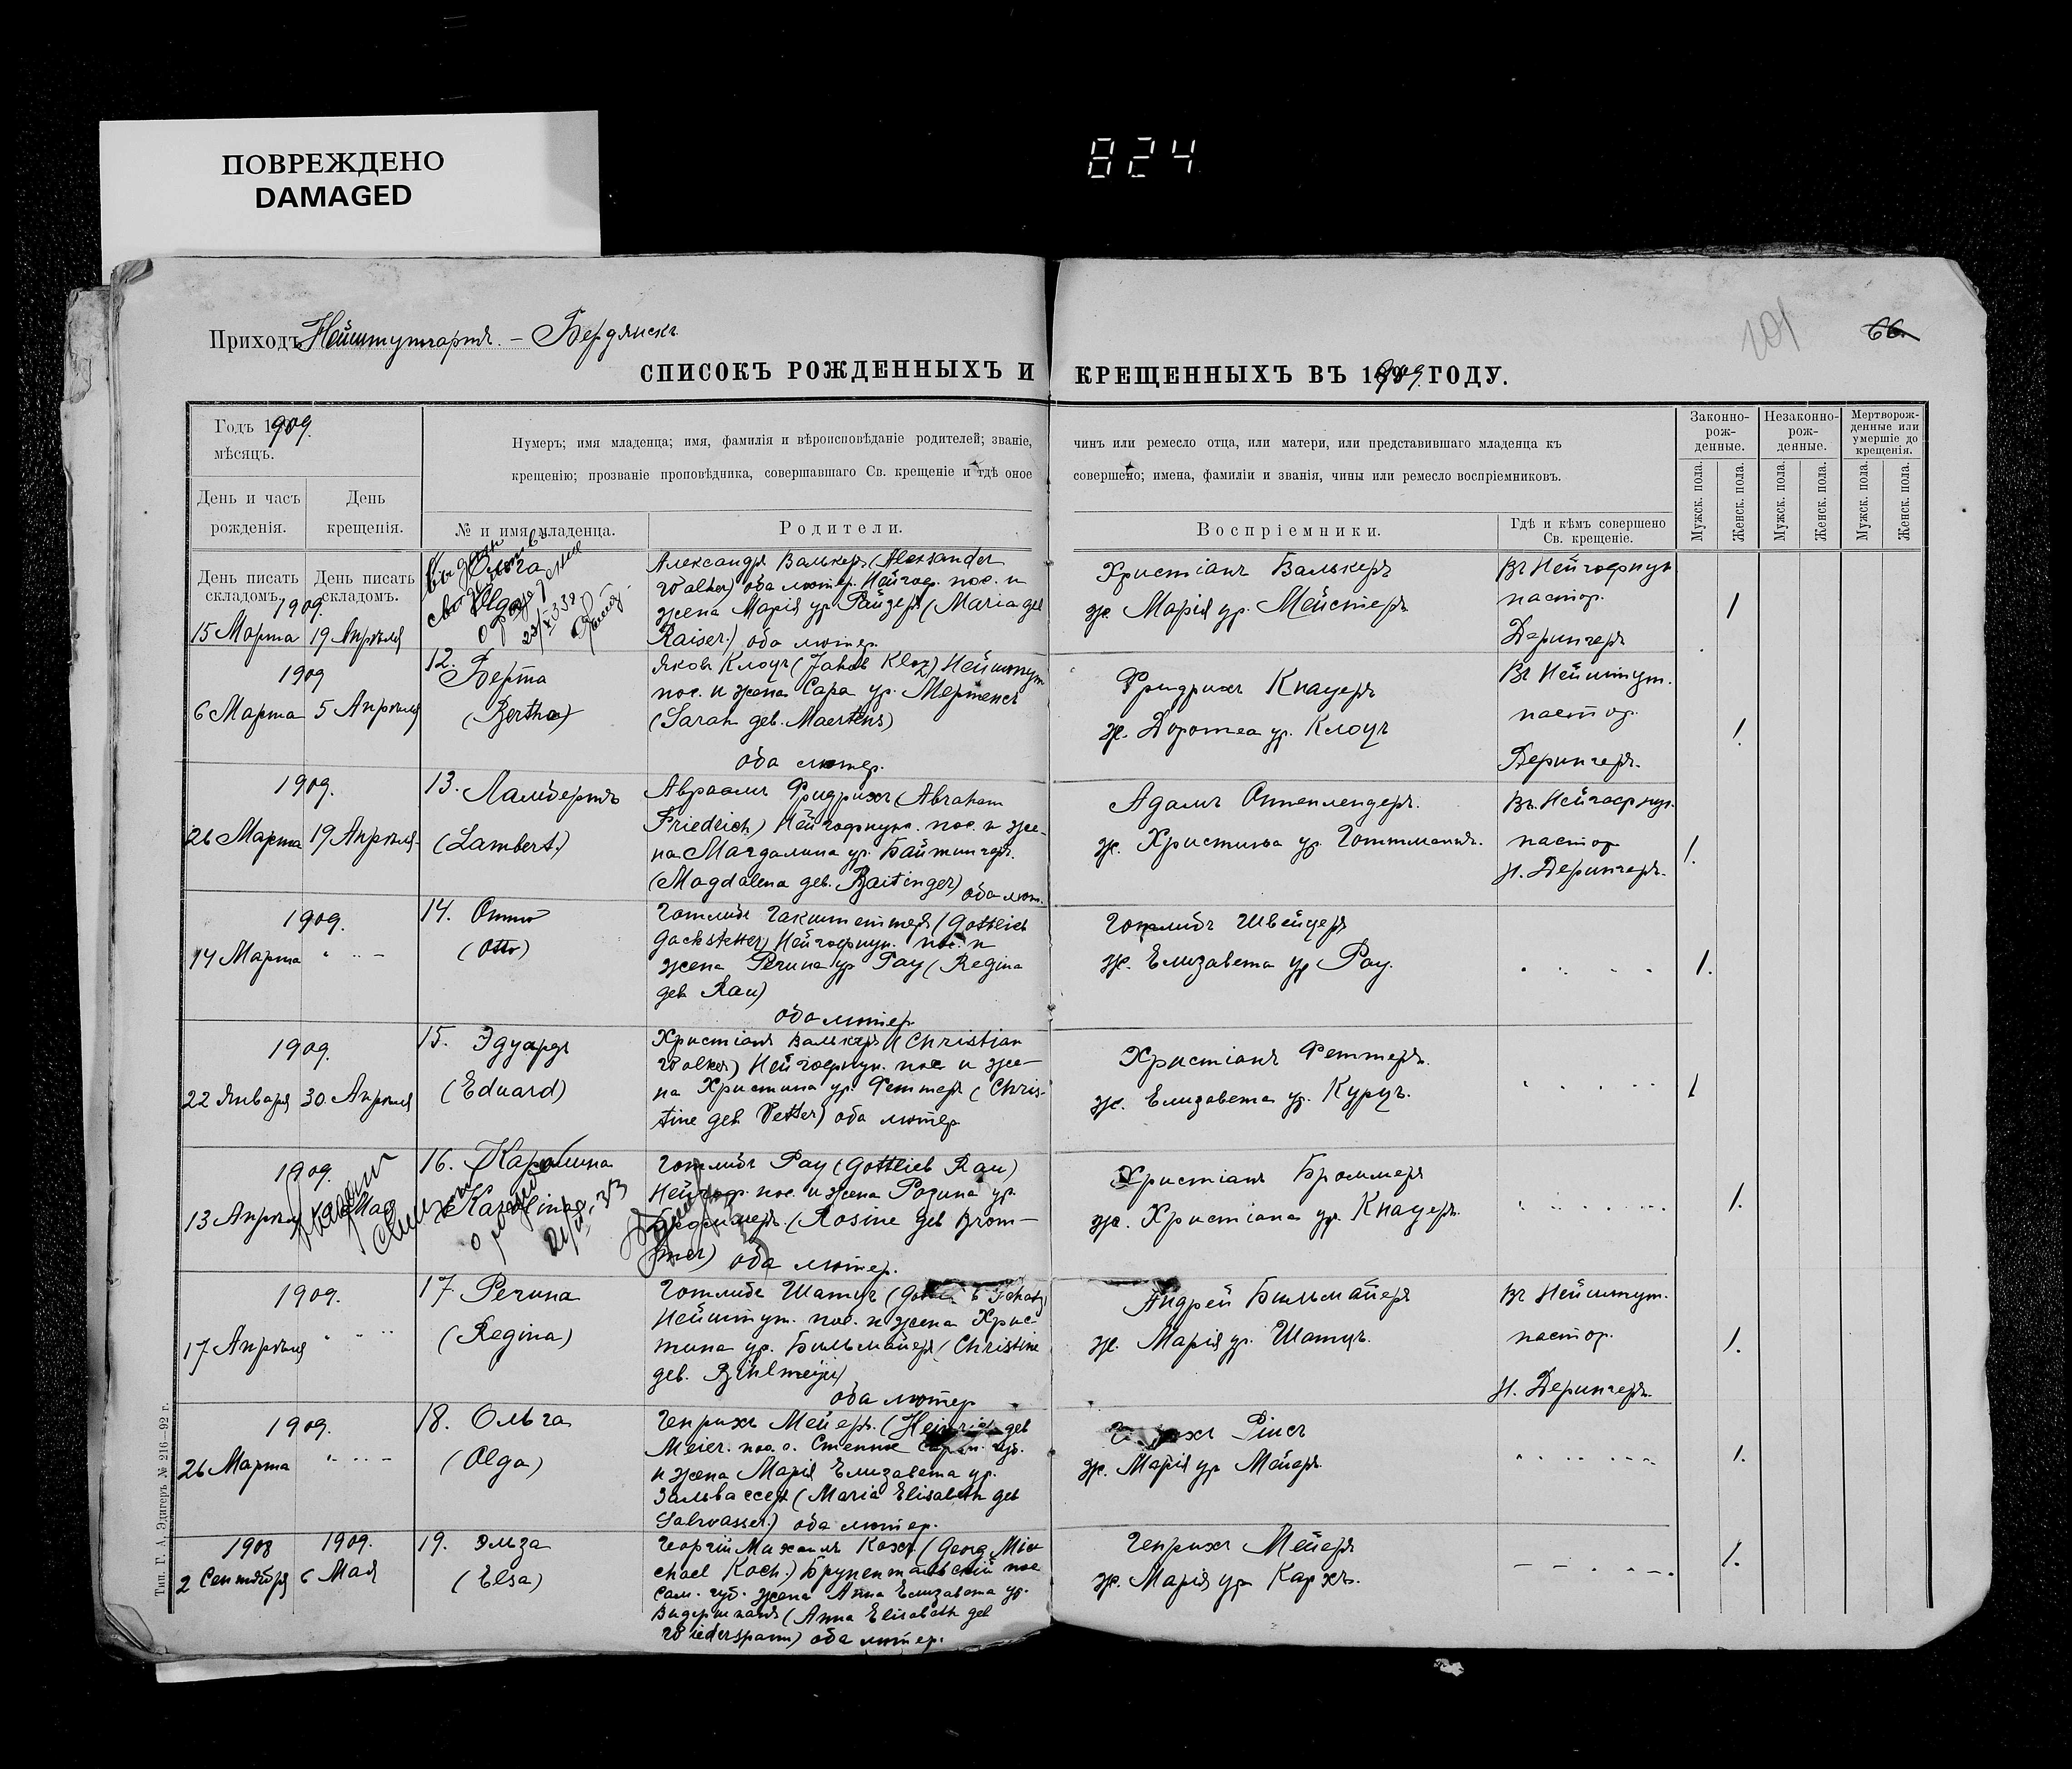 ПОВРЕЖДЕНО
DAMAGED
824
Приходъ Нейштутгартъ. – Бердянскъ.
101
66.
СПИСОКЪ РОЖДЕННЫХЪ И КРЕЩЕННЫХЪ ВЪ 1909 ГОДУ.
Годъ 1909.
мѣсяцъ.
День и часъ рожденія.
День крещенія.
День писать складомъ.
День писать складомъ.
Нумеръ; имя младенца; имя, фамилія и вѣроисповѣданіе родителей; званіе, чинъ или ремесло отца, или матери, или представившаго младенца къ
крещенію; прозваніе проповѣдника, совершавшаго Св. крещеніе и гдѣ оное совершено; имена, фамиліи и званія, чины или ремесло воспріемниковъ.
№ и имя младенца.
Родители.
Воспріемники.
Гдѣ и кѣмъ совершено Св. крещеніе.
Законно-рож-денные.
Незаконно-рож-денные.
Мертворож-денные или умершіе до крещенія.
Мужск. пола.
Женск. пола.
Мужск. пола.
Женск. пола.
Мужск. пола.
Женск. пола.
1909.
15 Марта
19 Апрѣля
Ольга
Olga
Александръ Валькеръ (Alexsander
Walker) оба лютер. Нейгоф. пос. и
жена Марія ур. Райзеръ (Maria geb
Raiser.) оба лютер.
Христіанъ Валькеръ
ж. Марія ур. Мейстеръ
Въ Нейгофнун.
пастор.
Дерингеръ
1
1909
6 Марта
5 Апрѣля
12. Берта
(Bertha)
Яковъ Клоцъ (Jakob Kloz) Нейштут
пос. и жена Сара ур. Мертенсъ
(Sarah geb. Maertens)
оба лютер.
Фридрихъ Кнауеръ
ж. Доротеа ур. Клоцъ
Въ Нейштут.
пастор.
Дерингеръ.
1.
1909.
26 Марта
19 Апрѣля.
13. Ламбертъ
(Lambert.)
Авраамъ Фридрихъ (Abraham
Friedrich) Нейгофнун. пос. и же-
на Магдалина ур. Байтингеръ.
(Magdalena geb. Baitinger) оба лют.
Адамъ Оттенлендеръ.
ж. Христина ур. Готтманъ.
Въ Нейгофнун.
пастор
Н. Дерингеръ.
1.
1909.
14 Марта
14. Отто
(Otto)
Готлибъ Гакштеттеръ (Gottlieb
Gackstetter) Нейгофнун. пос. и
жена Регина ур Рау (Regina
geb Rau)
оба лютер.
Готлибъ Швейцеръ
ж. Елизавета ур Рау.
1.
1909.
22 Января
30 Апрѣля
15. Эдуардъ
(Eduard)
Христіанъ Валькеръ (Christian
Walker) Нейгофнун. пос и же-
на Христина ур. Феттеръ (Chris-
tine geb Vetter) оба лютер
Христіанъ Феттеръ.
ж. Елизавета ур. Курцъ.
1
1909.
13 Апрѣля
16. Каролина
(Karolina)
Готлибъ Рау (Gottlieb Rau)
Нейгоф. пос. и жена Розина ур.
Броммеръ. (Rosine geb Brom-
mer) оба лютер.
Христіанъ Броммеръ
ж. Христіана ур. Кнауеръ.
1.
1909.
17 Апрѣля
17 Регина
(Regina)
Готлибъ Шатцъ
Нейштут. пос. и жена Хрис-
тина ур. Бильмайеръ (Christine
geb. Bihlmeijer)
оба лютер
Андрей Бильмайеръ
ж. Марія ур. Шатцъ.
Въ Нейштут.
пастор.
Н. Дерингеръ.
1.
1909.
26 Марта
18. Ольга
(Olga)
Генрихъ Мейеръ. (Heinrich geb
Meier. пос.
и жена Марія Елизавета ур.
Зальвассеръ (Maria Elisabeth geb
Salwasser.) оба лютер.
ж. Марія ур Мейеръ.
1.
1908
2 Сентября
1909.
6 Мая
19. Эльза
(Elsa)
Георгій Михаилъ Кохъ. (Georg Mi-
chael Koch.) Брунентальскій пос
Сам. губ. жена Анна Елизавета ур.
Видершпанъ (Anna Elisabeth geb
Wiederspann) оба лютер.
Генрихъ Мейеръ
ж. Марія ур Кархъ.
1.
Тип. Г. А. Эдигеръ № 216—92 г.